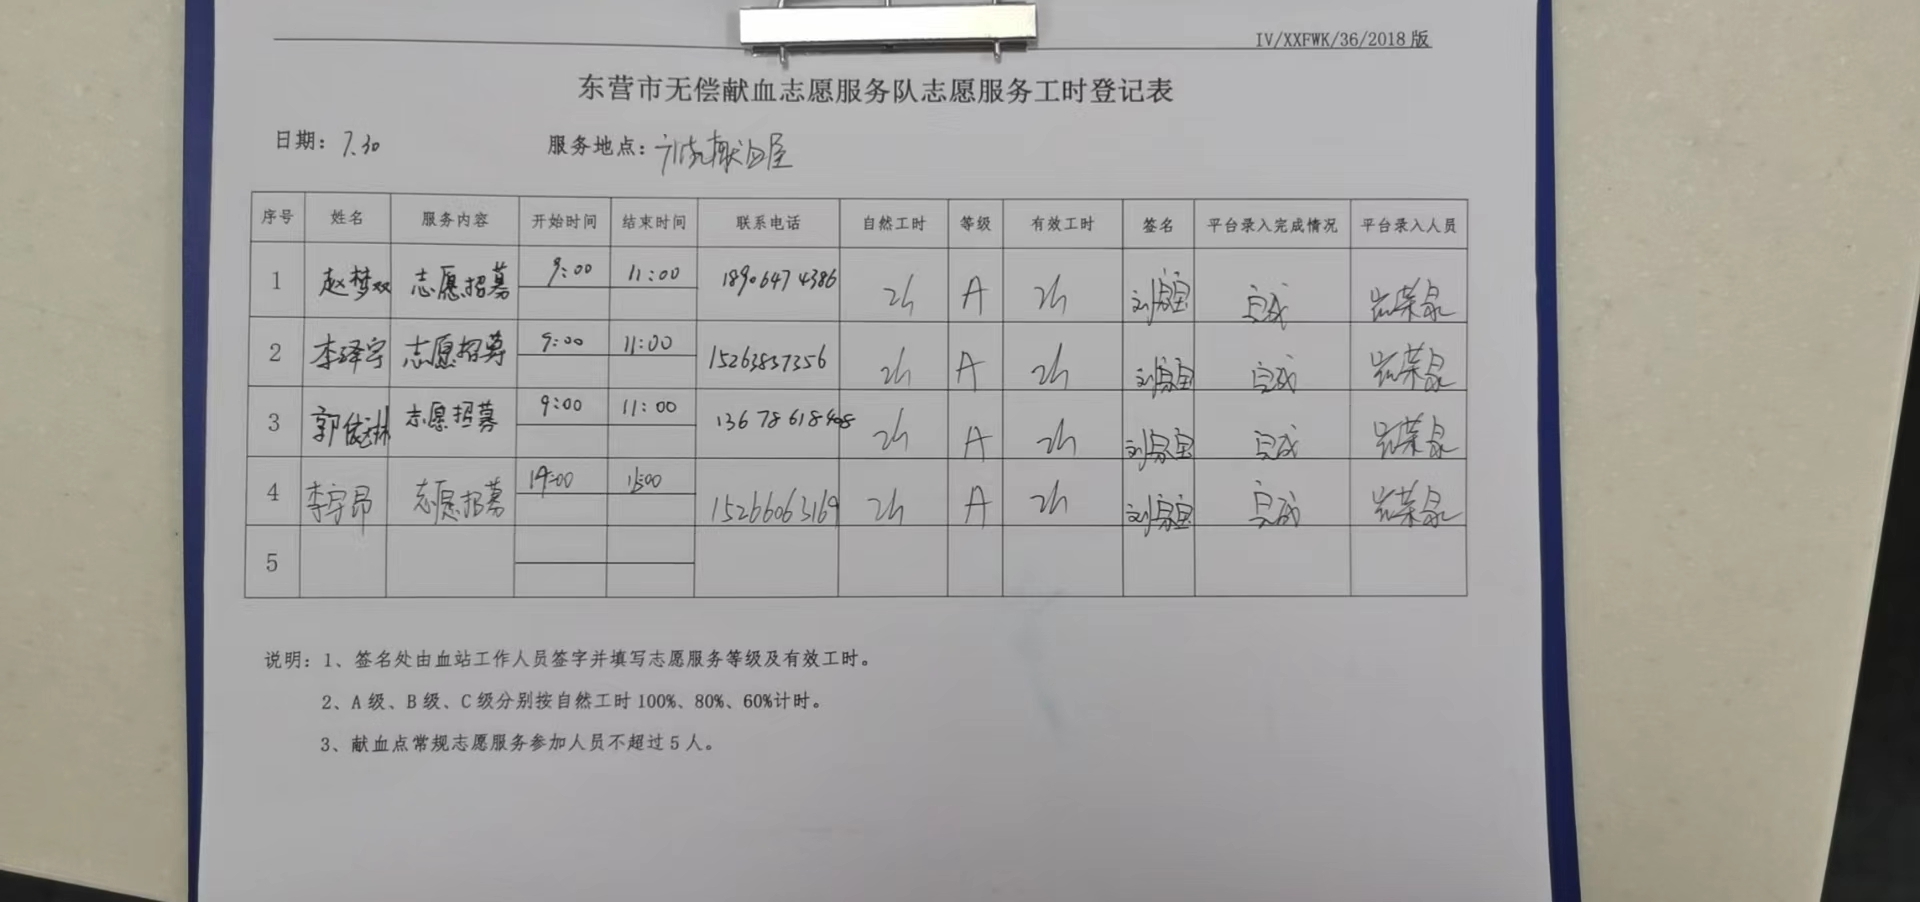 IV/XXFWK/36/2018 版
东营市无偿献血志愿服务队志愿服务工时登记表
日期: 7.30 服务地点: 献血屋
序号 姓名 服务内容 开始时间 结束时间 联系电话 自然工时 等级 有效工时 签名 平台录入完成情况 平台录入人员
1 赵梦双 志愿招募 9:00 11:00 18906474386 2h A 2h 完成
2 李泽宇 志愿招募 9:00 11:00 15263837356 2h A 2h 完成
3 郭 志愿招募 9:00 11:00 13678618408 2h A 2h 完成
4 李宇昂 志愿招募 14:00 15266063169 2h A 2h 完成
5
说明: 1、签名处由血站工作人员签字并填写志愿服务等级及有效工时。
2、A 级、B 级、C 级分别按自然工时 100%、80%、60%计时。
3、献血点常规志愿服务参加人员不超过 5 人。